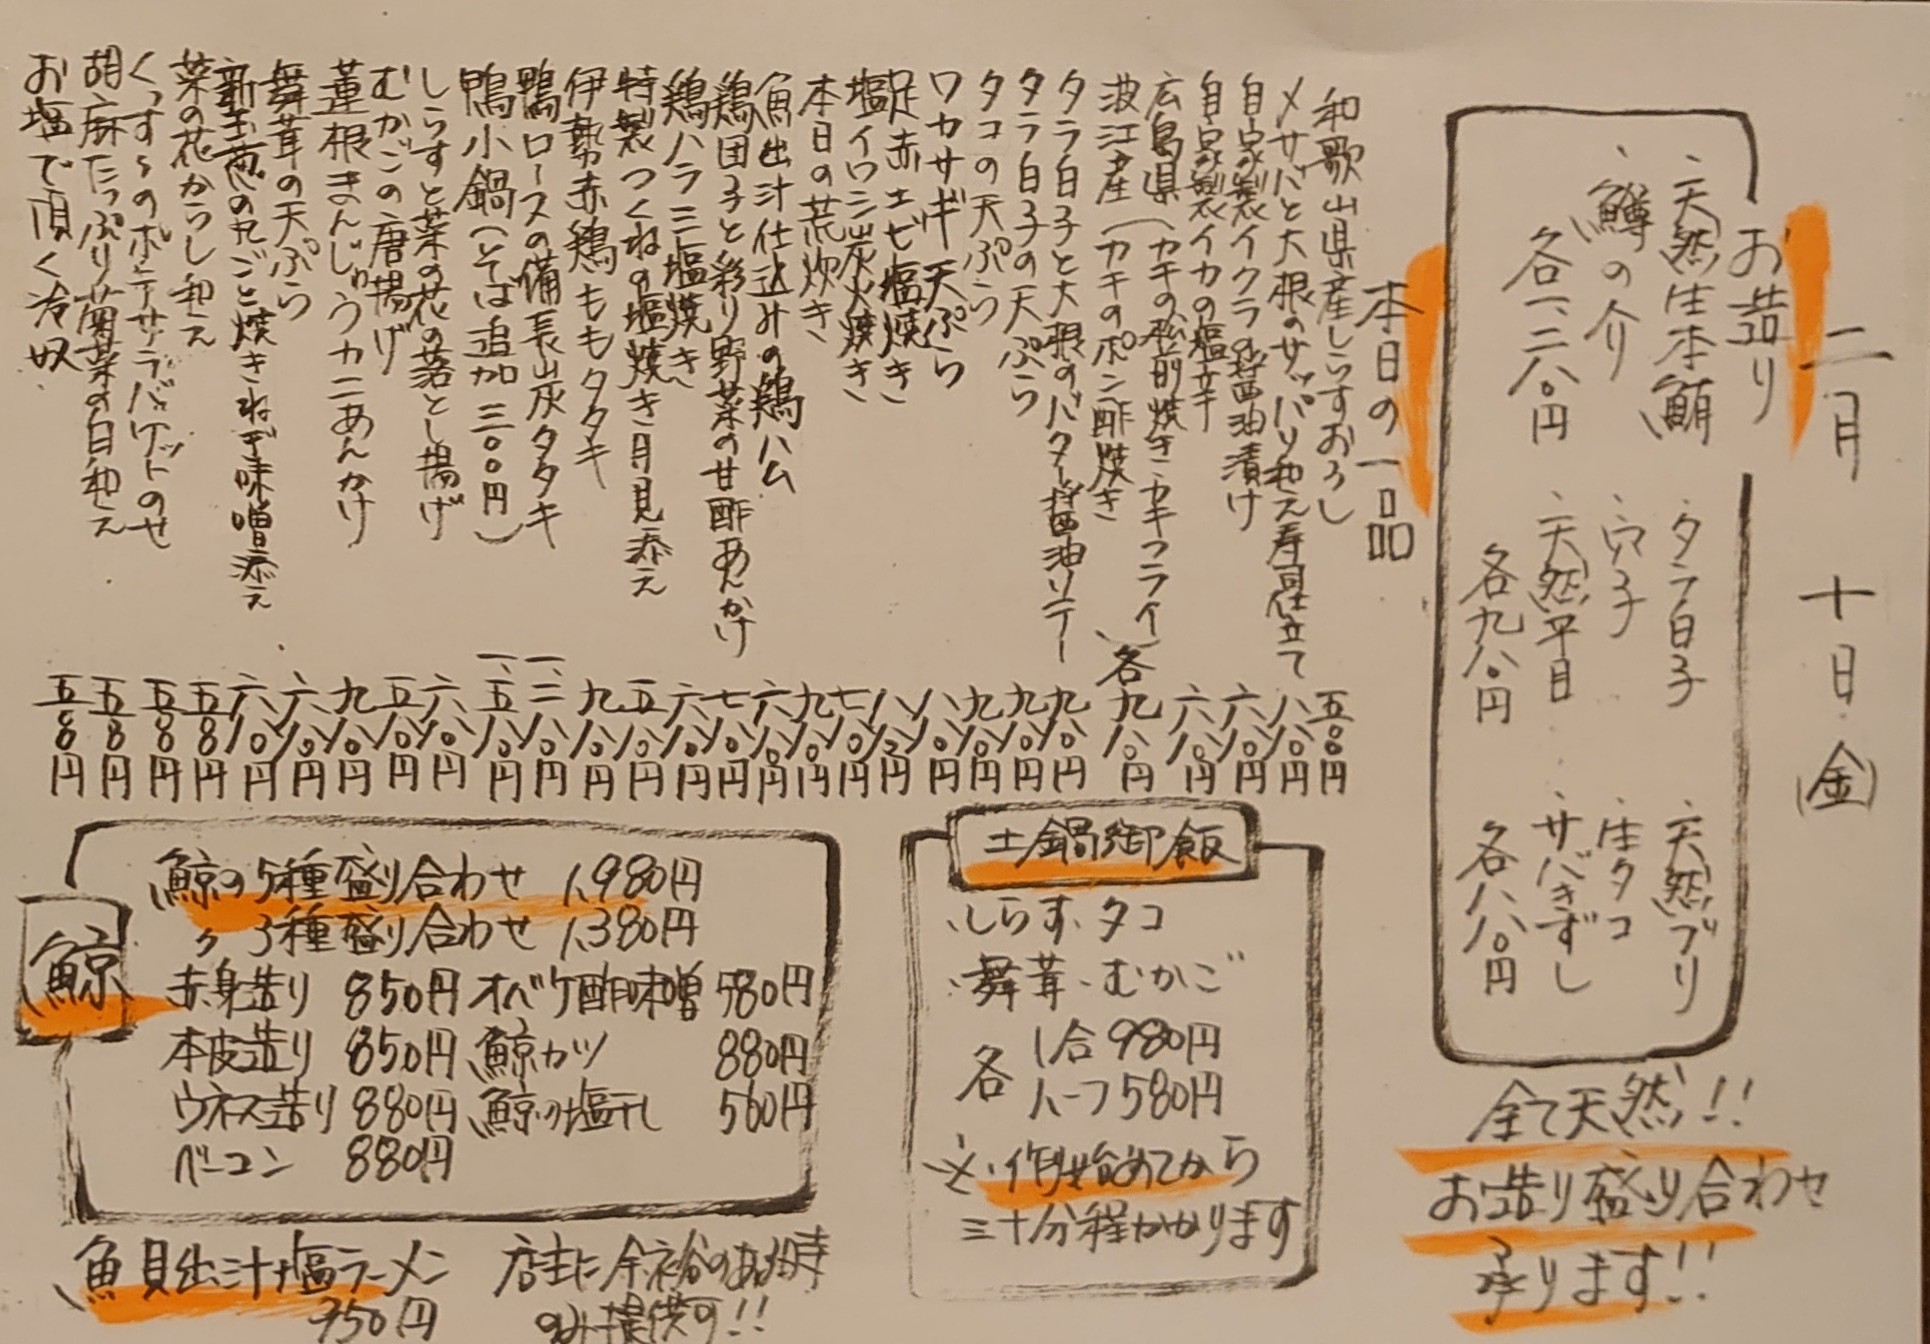 二月 十日 (金)
お造り
・天然生本鮪
・鱒の介
各一、二八〇円
・タラ白子
・穴子
・天然平目
各九八〇円
・天然ブリ
・生タコ
・サバきずし
各八八〇円
全て天然!!
お造り盛り合わせ
承ります!!
本日の一品
和歌山県産しらすおろし 五八〇円
〆サバと大根のサッパリ和え寿司仕立て 八八〇円
自家製イクラの醤油漬け 六八〇円
自家製イカの塩辛 六八〇円
広島県(カキの松前焼き・カキフライ)
波江産(カキのポン酢焼き 各九八〇円
タラ白子と大根のバター醤油ソテー 九八〇円
タラ白子の天ぷら 九八〇円
タコの天ぷら 九八〇円
ワカサギ天ぷら 八八〇円
足赤エビ塩焼き 八八〇円
塩イワシ炭火焼き 七八〇円
本日の荒炊き 九八〇円
魚出汁仕込みの鶏ハム 六八〇円
鶏団子と彩り野菜の甘酢あんかけ 七八〇円
鶏ハラミ塩焼き 六八〇円
特製つくねの塩焼き月見添え 五八〇円
伊勢赤鶏ももタタキ 九八〇円
鴨ロースの備長山灰タタキ 一、二八〇円
鴨小鍋(そば追加 三〇〇円) 一、五八〇円
しらすと菜の花の落とし揚げ 六八〇円
むかごの唐揚げ 五八〇円
蓮根まんじゅうカニあんかけ 九八〇円
舞茸の天ぷら 六八〇円
新玉葱の丸ごと焼きねぎ味噌添え 六八〇円
菜の花からし和え 五八〇円
くんすものポテサラバケットのせ 五八〇円
胡麻たっぷり菊菜の白和え 五八〇円
お塩で頂く冷奴 五八〇円
土鍋御飯
・しらす・タコ
・舞茸・むかご
各 1合 980円
ハーフ 580円
※・作り始めてから
三十分程かかります
鯨
鯨の5種盛り合わせ 1,980円
〃 3種盛り合わせ 1,380円
赤身造り 850円 オバケ酢味噌 580円
本皮造り 850円 鯨カツ 880円
ウネス造り 880円 鯨の塩干し 560円
ベーコン 880円
魚貝出汁塩ラーメン
750円
店主に余裕のある時
のみ提供可!!